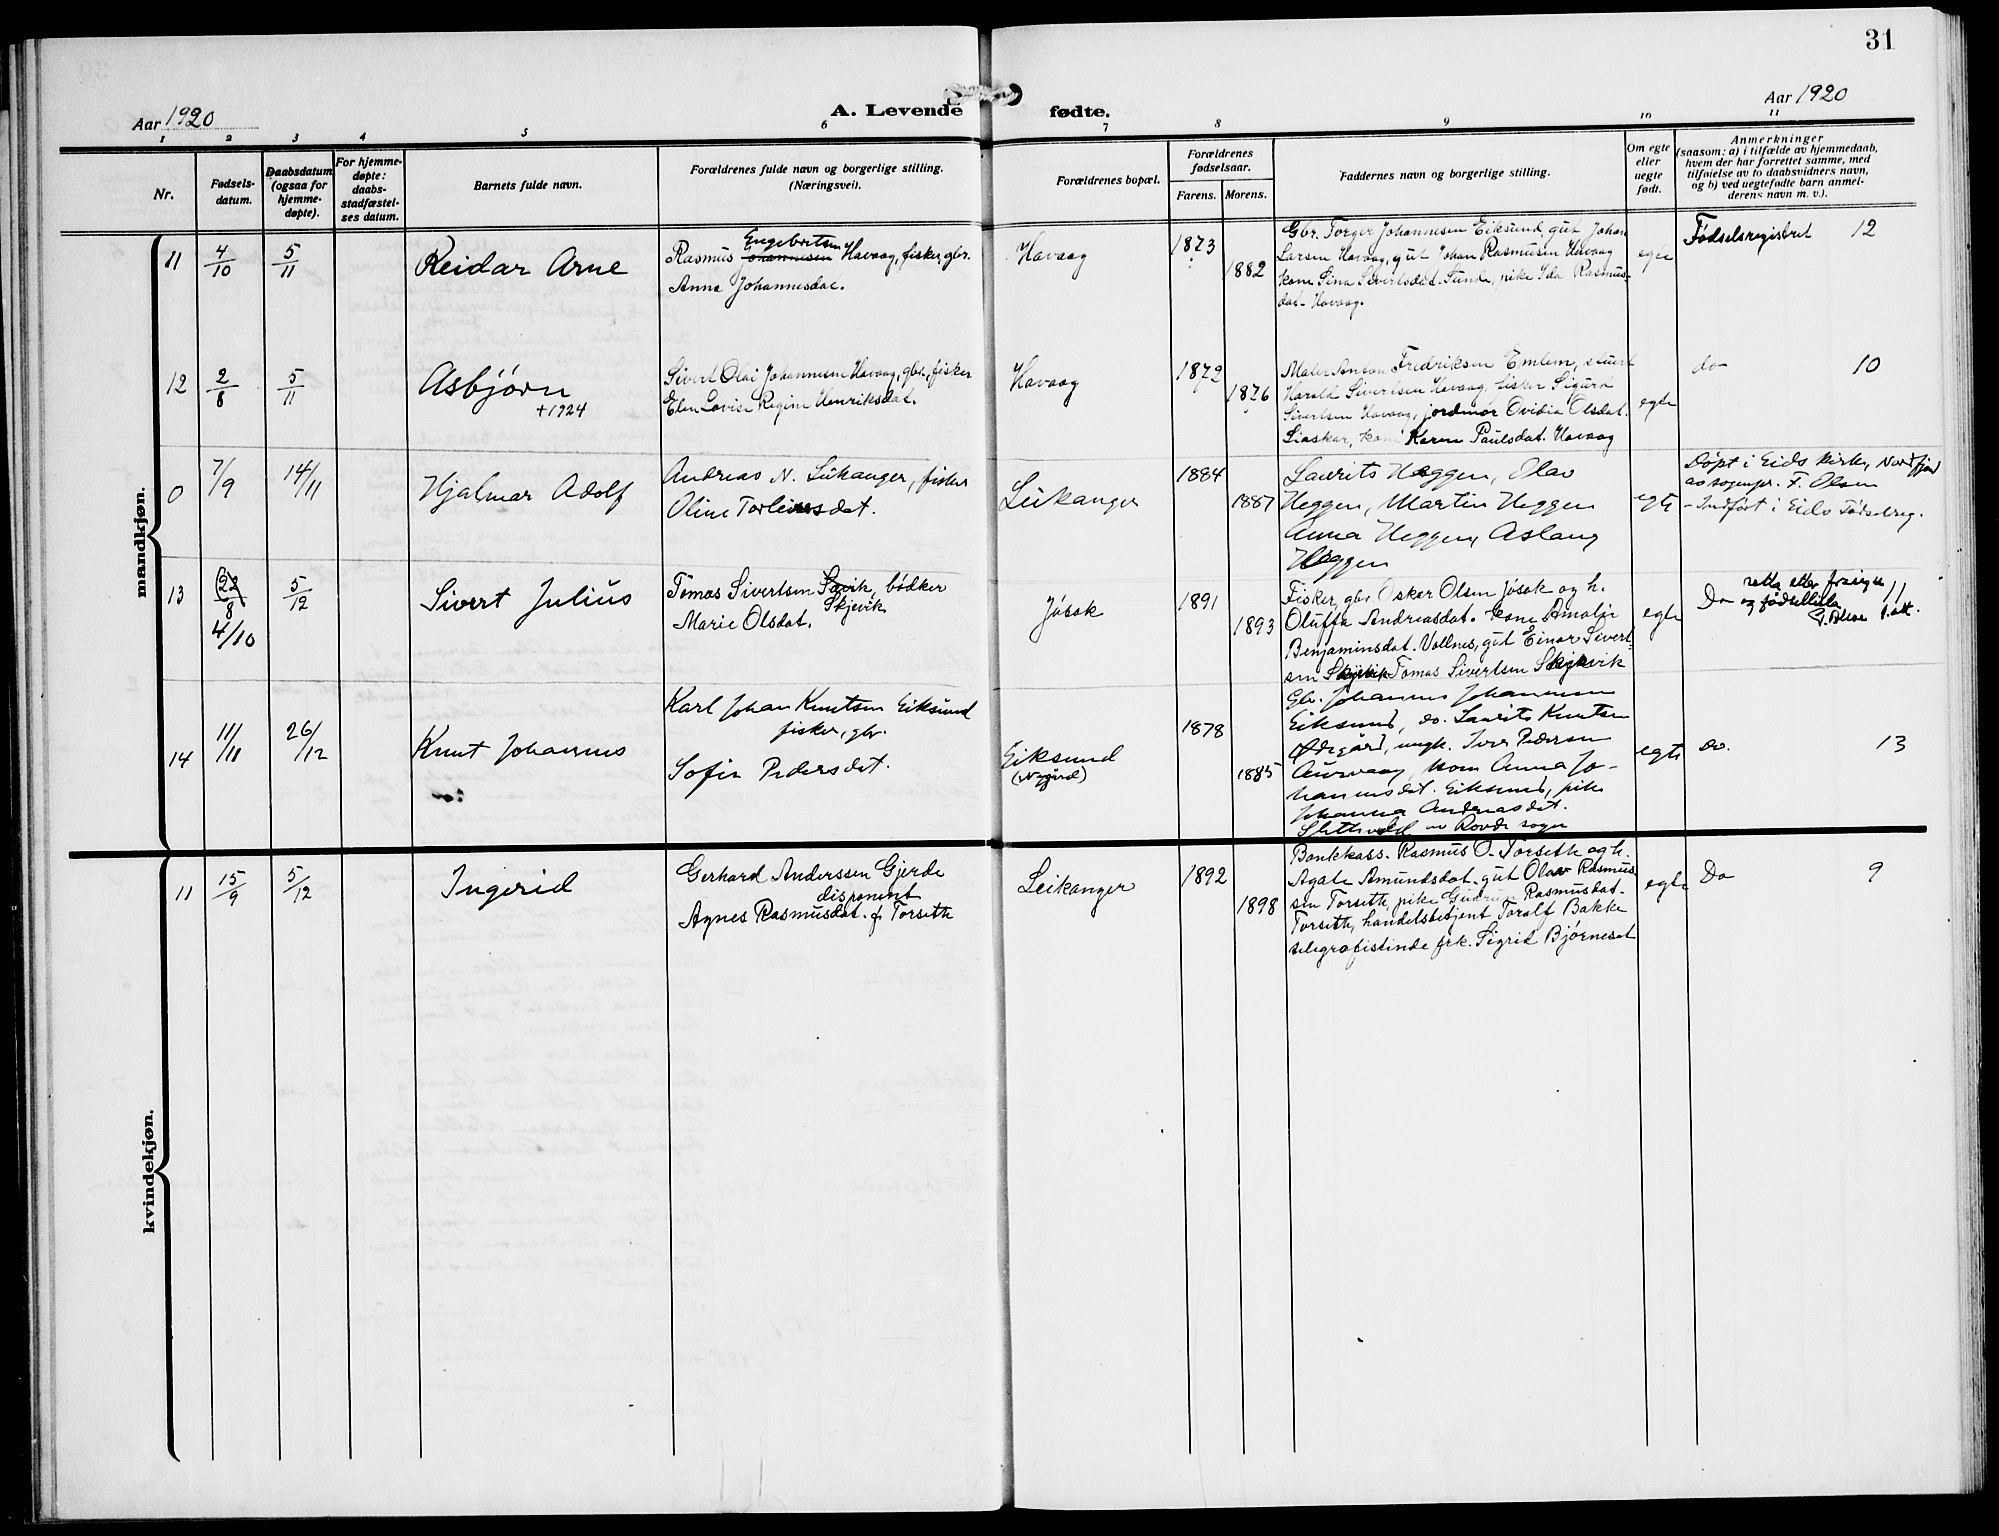 31
Aar 1920
A. Levende fødte.
Aar 1920
1 2 3 4 5 6 7 8 9 10 11
Nr.
Fødsels-
datum.
Daabsdatum
(ogsaa for
hjemme-
døpte).
For hjemme-
døpte:
daabs-
stadfæstel-
ses datum.
Barnets fulde navn.
Forældrenes fulde navn og borgerlige stilling.
(Næringsvei).
Forældrenes bopæl.
Forældrenes
fødselsaar.
Farens. Morens.
Faddernes navn og borgerlige stilling.
Om egte
eller
uegte
født.
Anmerkninger
(saasom: a) i tilfælde av hjemmedaab,
hvem der har forrettet samme, med
tilføielse av to daabsvidners navn,
og b) ved uegtefødte barn anmel-
derens navn m. v.).
mandkjøn.
11
4/10
5/11
Reidar Arne
Engebretsen
Rasmus Johannesen Havaag, fisker, gbr.
Anna Johannesdat.
Havaag
1873
1882
Gbr. Torger Johannesen Eiksund, gut Johan
Larsen Havaag, gut Johan Rasmusen Havaag
kone Sina Sivertsdat. Funke, pike Ida Rasmus-
dat. Havaag.
egte
Fødselsregistret 12
12
2/8
5/11
Asbjørn
+1924
Sivert Olai Johannesen Havaag, gbr., fisker
Elen Lovise Regine Henriksdat.
Havaag
1872
1876
Maler Anton Fredriksen Emlem, stuert
Harald Sivertsen Havaag, fisker Sigurd
Sivertsen Havaag, jordmor Ovidia Olsdat.
Liaskar, kone Karen Paulsdat. Havaag
egte
do 10
0
7/9
14/11
Hjalmar Adolf
Andreas N. Leikanger, fisker
Oline Torleivsdat.
Leikanger
1884
1887
Laurits Heggen, Olav
Heggen, Martin Heggen
Anna Heggen, Aslaug
Heggen
egte
Døpt i Eids kirke, Nordfjord
av sognepr. F. Olsen
- Indført i Eids Fødselreg.
13
22/8
4/10
5/12
Sivert Julius
Tomas Sivertsen Søvik, bødker
Skjevik
Marie Olsdat.
Jøsok
1891
1893
Fisker, gbr Oskar Olsen Jøsok og h.
Oluffa Andreasdat. kone Amalie
Benjaminsdat. Vollnes, gut Einar Sivert-
sen Skjevik Tomas Sivertsen Skjevik
egte
Do 11
retta etter
og fødsellista
14
11/11
26/12
Knut Johannes
Karl Johan Knutsen Eiksund
fisker, gbr.
Sofie Pedersdat.
Eiksund
(Nygård)
1878
1885
Gbr. Johannes Johannessen
Eiksund, do. Laurits Knutsen
Ødegård, ungk. Iver Pedersen
Aurvaag, kone Anna Jo-
hannesdat. Eiksund, pike
Johanna Andreasdat.
Slettevold av Rovde sogn
egte
do. 13
kvindekjøn.
11
15/9
5/12
Ingerid
Gerhard Anderssen Gjerde
disponent
Agnes Rasmusdat. f. Torseth
Leikanger
1892
1898
Bankkass. Rasmus O. Torseth og h.
Agate Amundsdat. gut Olav Rasmus-
sen Torseth, pike Gudrun Rasmusdat.
Torseth, handelsbetjent Toralf Bakke
telegrafistinde frk. Sigrid Bjørneset
egte
Do 9